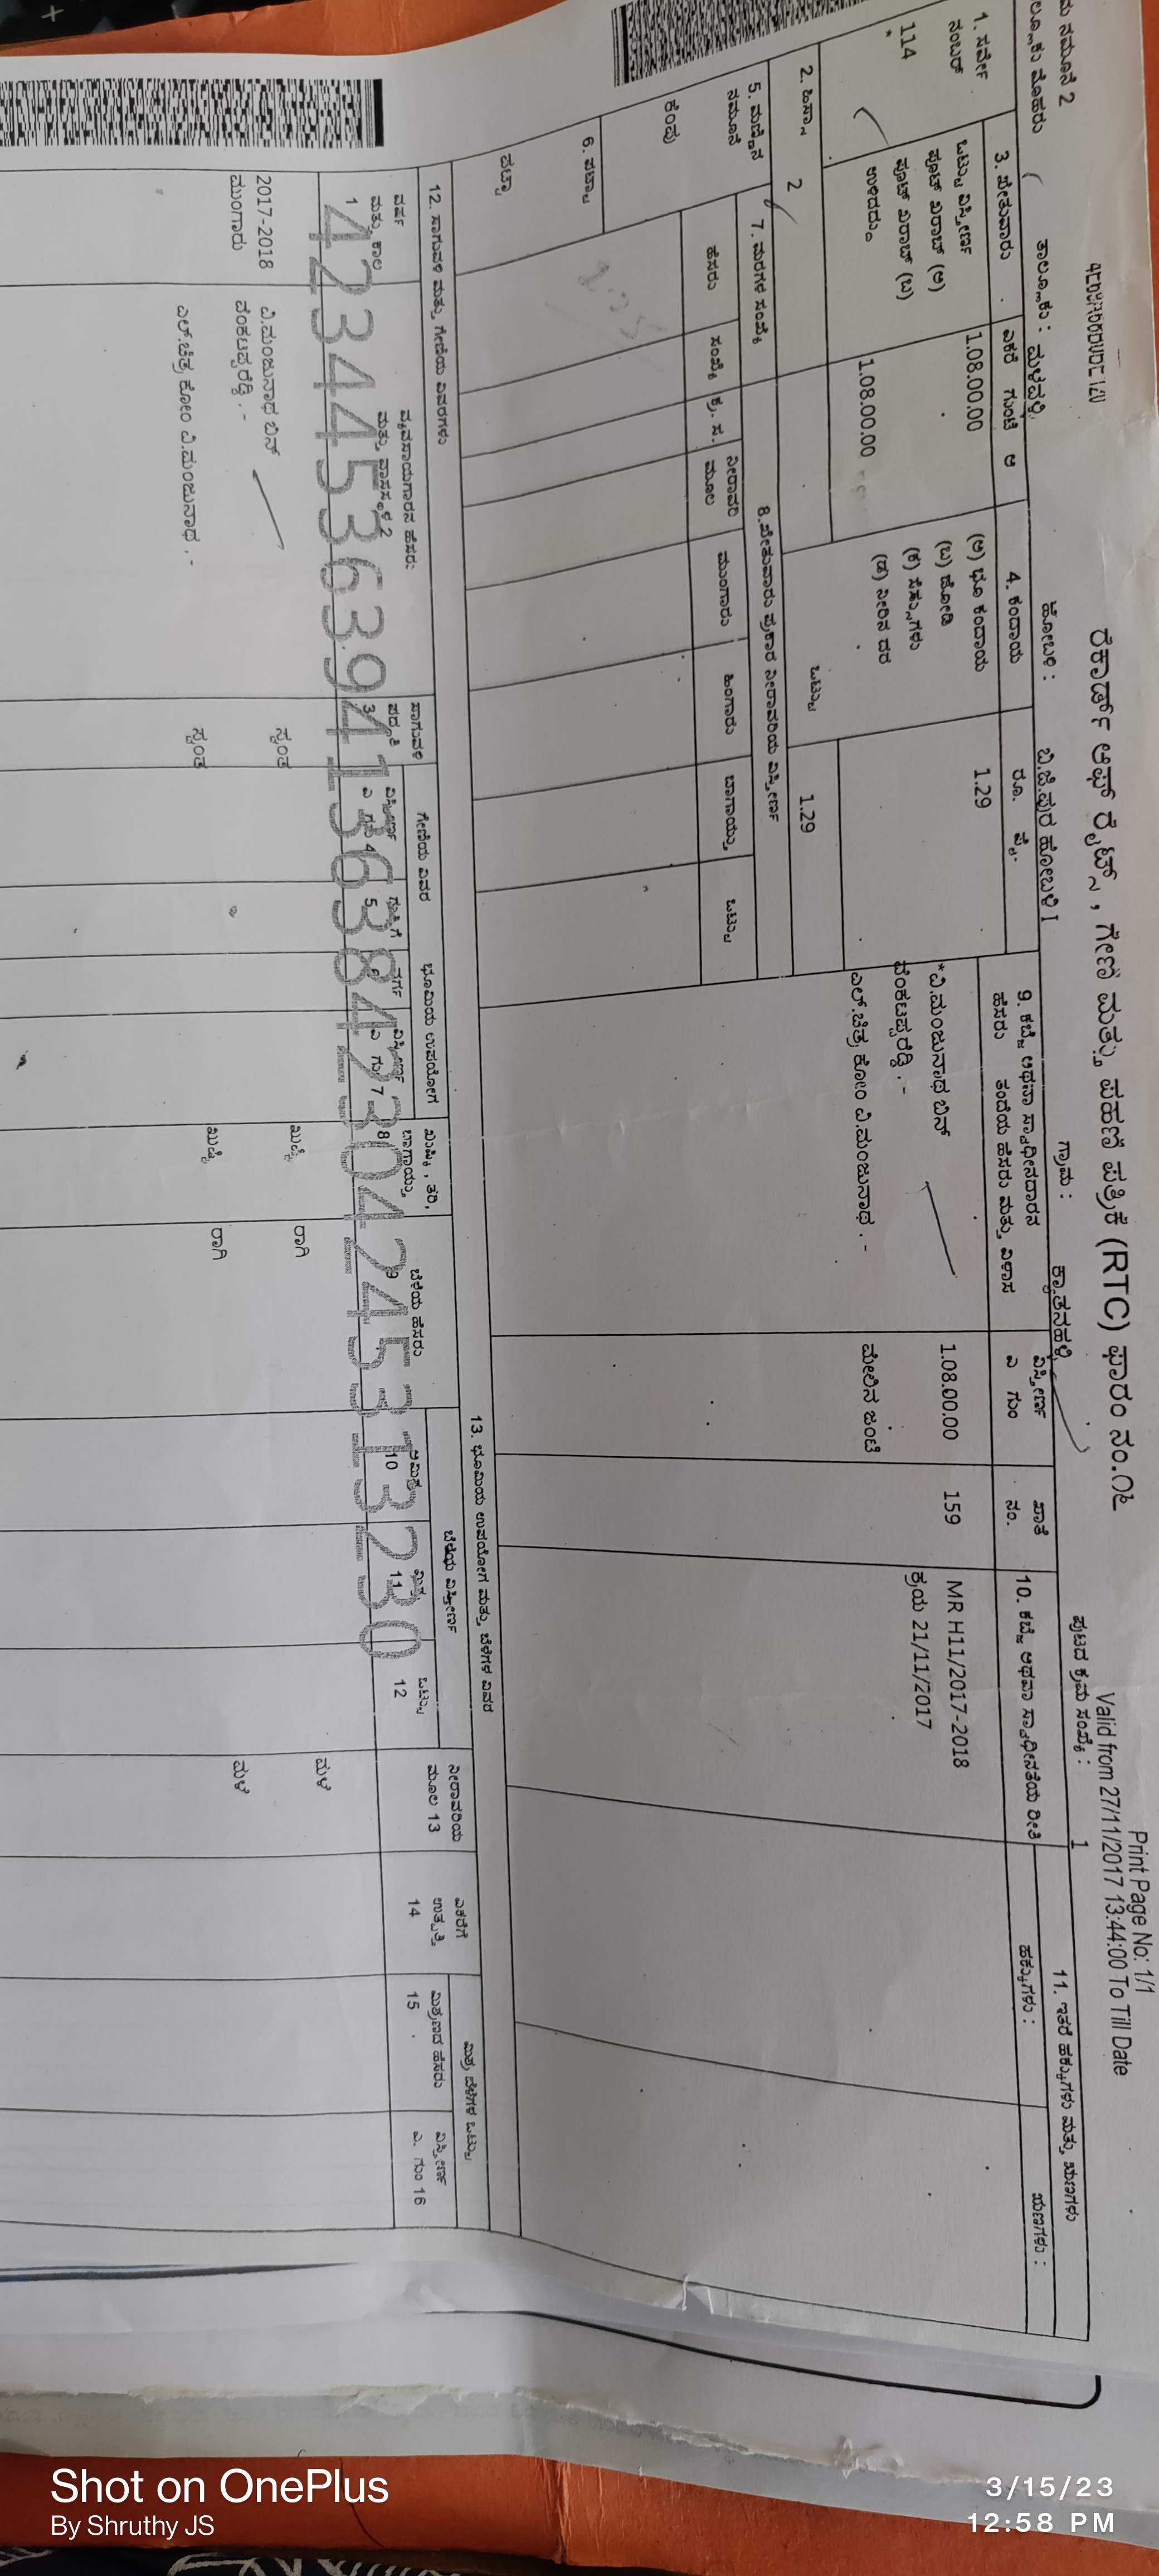 ನಮೂನೆ 2
ರೆಕಾರ್ಡ್ ಆಫ್ ರೈಟ್ಸ್, ಗೇಣಿ ಮತ್ತು ಪಹಣಿ ಪತ್ರಿಕೆ (RTC) ಫಾರಂ ನಂ.೧೬
Print Page No: 1/1
Valid from 27/11/2017 13:44:00 To Till Date
ತಾಲ್ಲೂಕು : ಮಳವಳ್ಳಿ
ಹೋಬಳಿ : ಬಿ.ಜಿ.ಪುರ ಹೋಬಳಿ I
ಗ್ರಾಮ :
ಪುಟದ ಕ್ರಮ ಸಂಖ್ಯೆ : 1
1. ಸರ್ವೆ ನಂಬರ್
114
*
3. ಕ್ಷೇತ್ರವಾರು
ಎಕರೆ ಗುಂಟೆ ಆ
ಒಟ್ಟು ವಿಸ್ತೀರ್ಣ 1.08.00.00
ಪೂಟ್ ಖರಾಬ್ (ಅ)
ಪೂಟ್ ಖರಾಬ್ (ಬ)
ಉಳಿದದ್ದು 1.08.00.00
4. ಕಂದಾಯ
ರೂ. ಪೈ.
(ಅ) ಭೂ ಕಂದಾಯ 1.29
(ಬ) ಜೋಡಿ
(ಕ) ಸೆಸ್ಸುಗಳು
(ಡ) ನೀರಿನ ದರ
ಒಟ್ಟು 1.29
9. ಕಬ್ಜೆ ಅಥವಾ ಸ್ವಾಧೀನದಾರನ
ಹೆಸರು ತಂದೆಯ ಹೆಸರು ಮತ್ತು ವಿಳಾಸ
*ವಿ.ಮಂಜುನಾಥ ಬಿನ್
ವೆಂಕಟಪ್ಪರೆಡ್ಡಿ . -
ಎಲ್.ಚಿತ್ರ ಕೋಂ ವಿ.ಮಂಜುನಾಥ . -
ವಿಸ್ತೀರ್ಣ
ಎ ಗುಂ
1.08.00.00
ಮೇಲಿನ ಜಂಟಿ
ಖಾತೆ
ನಂ.
159
10. ಕಬ್ಜೆ ಅಥವಾ ಸ್ವಾಧೀನತೆಯ ರೀತಿ
MR H11/2017-2018
ಕ್ರಯ 21/11/2017
11. ಇತರೆ ಹಕ್ಕುಗಳು ಮತ್ತು ಋಣಗಳು
ಹಕ್ಕುಗಳು :
ಋಣಗಳು :
2. ಹಿಸ್ಸಾ 2
5. ಮಣ್ಣಿನ ನಮೂನೆ
ಕೆಂಪು
6. ಪಟ್ಟಾ
ಪಟ್ಟಾ
7. ಮರಗಳ ಸಂಖ್ಯೆ
ಹೆಸರು ಸಂಖ್ಯೆ
8.ಕ್ಷೇತ್ರವಾರು ಪ್ರಕಾರ ನೀರಾವರಿಯ ವಿಸ್ತೀರ್ಣ
ಕ್ರ. ಸ. ನೀರಾವರಿ ಮೂಲ ಮುಂಗಾರು ಹಿಂಗಾರು ಬಾಗಾಯ್ತು ಒಟ್ಟು
12. ಸಾಗುವಳಿ ಮತ್ತು ಗೇಣಿಯ ವಿವರಗಳು
13. ಭೂಮಿಯ ಉಪಯೋಗ ಮತ್ತು ಬೆಳೆಗಳ ವಿವರ
ವರ್ಷ ಮತ್ತು ಕಾಲ 1
ವ್ಯವಸಾಯಗಾರನ ಹೆಸರು ಮತ್ತು ವಾಸಸ್ಥಳ 2
ಸಾಗುವಳಿ ಪದ್ಧತಿ 3
ಗೇಣಿಯ ವಿವರ
ವಿಸ್ತೀರ್ಣ 4
5
ಭೂಮಿಯ ಉಪಯೋಗ
ವರ್ಗ
ವಿಸ್ತೀರ್ಣ ಎ ಗುಂ 7
ಖುಷ್ಕಿ, ತರಿ, ಬಾಗಾಯ್ತು 8
ಬೆಳೆಯ ಹೆಸರು 9
ಬೆಳೆಯ ವಿಸ್ತೀರ್ಣ
ಅಮಿಶ್ರ 10
ಮಿಶ್ರ 11
ಒಟ್ಟು 12
ನೀರಾವರಿಯ ಮೂಲ 13
ಎಕರೆಗೆ ಉತ್ಪತ್ತಿ 14
ಮಿಶ್ರ ಬೆಳೆಗಳ ಒಟ್ಟು
ಮಿಶ್ರಣದ ಹೆಸರು 15
ವಿಸ್ತೀರ್ಣ ಎ. ಗುಂ 16
423445363941363842304245313230
2017-2018
ಮುಂಗಾರು
ವಿ.ಮಂಜುನಾಥ ಬಿನ್
ವೆಂಕಟಪ್ಪರೆಡ್ಡಿ . -
ಸ್ವಂತ ಖುಷ್ಕಿ ರಾಗಿ ಮಳೆ
ಎಲ್.ಚಿತ್ರ ಕೋಂ ವಿ.ಮಂಜುನಾಥ . -
ಸ್ವಂತ ಖುಷ್ಕಿ ರಾಗಿ ಮಳೆ
Shot on OnePlus
By Shruthy JS
3/15/23
12:58 PM